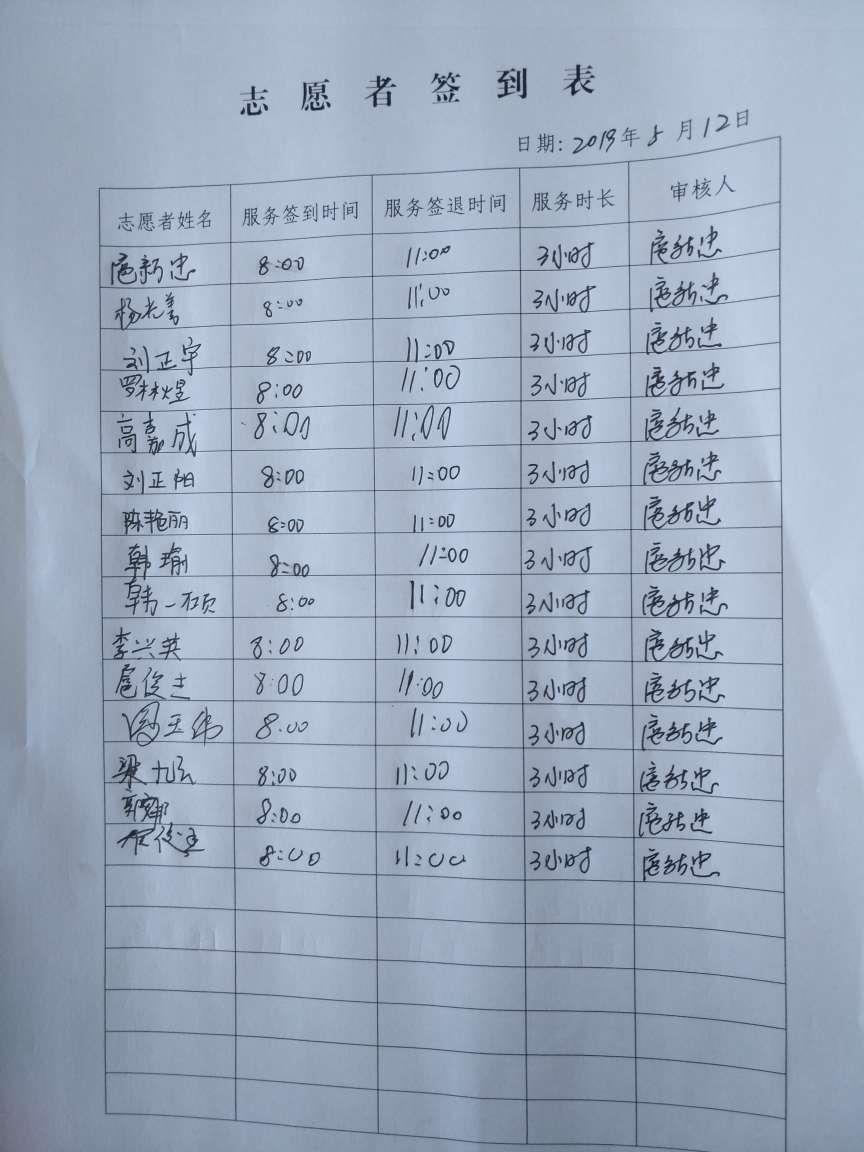 志愿者签到表
日期: 2019年5月12日
志愿者姓名 服务签到时间 服务签退时间 服务时长 审核人
扈新忠 8:00 11:00 3小时 扈新忠
杨光善 8:00 11:00 3小时 扈新忠
刘正宇 8:00 11:00 3小时 扈新忠
罗林煜 8:00 11:00 3小时 扈新忠
高嘉成 8:00 11:00 3小时 扈新忠
刘正阳 8:00 11:00 3小时 扈新忠
陈艳丽 8:00 11:00 3小时 扈新忠
韩瑜 8:00 11:00 3小时 扈新忠
韩一硕 8:00 11:00 3小时 扈新忠
李兴英 8:00 11:00 3小时 扈新忠
扈俊 8:00 11:00 3小时 扈新忠
玉伟 8:00 11:00 3小时 扈新忠
梁九 8:00 11:00 3小时 扈新忠
8:00 11:00 3小时 扈新忠
8:00 11:00 3小时 扈新忠